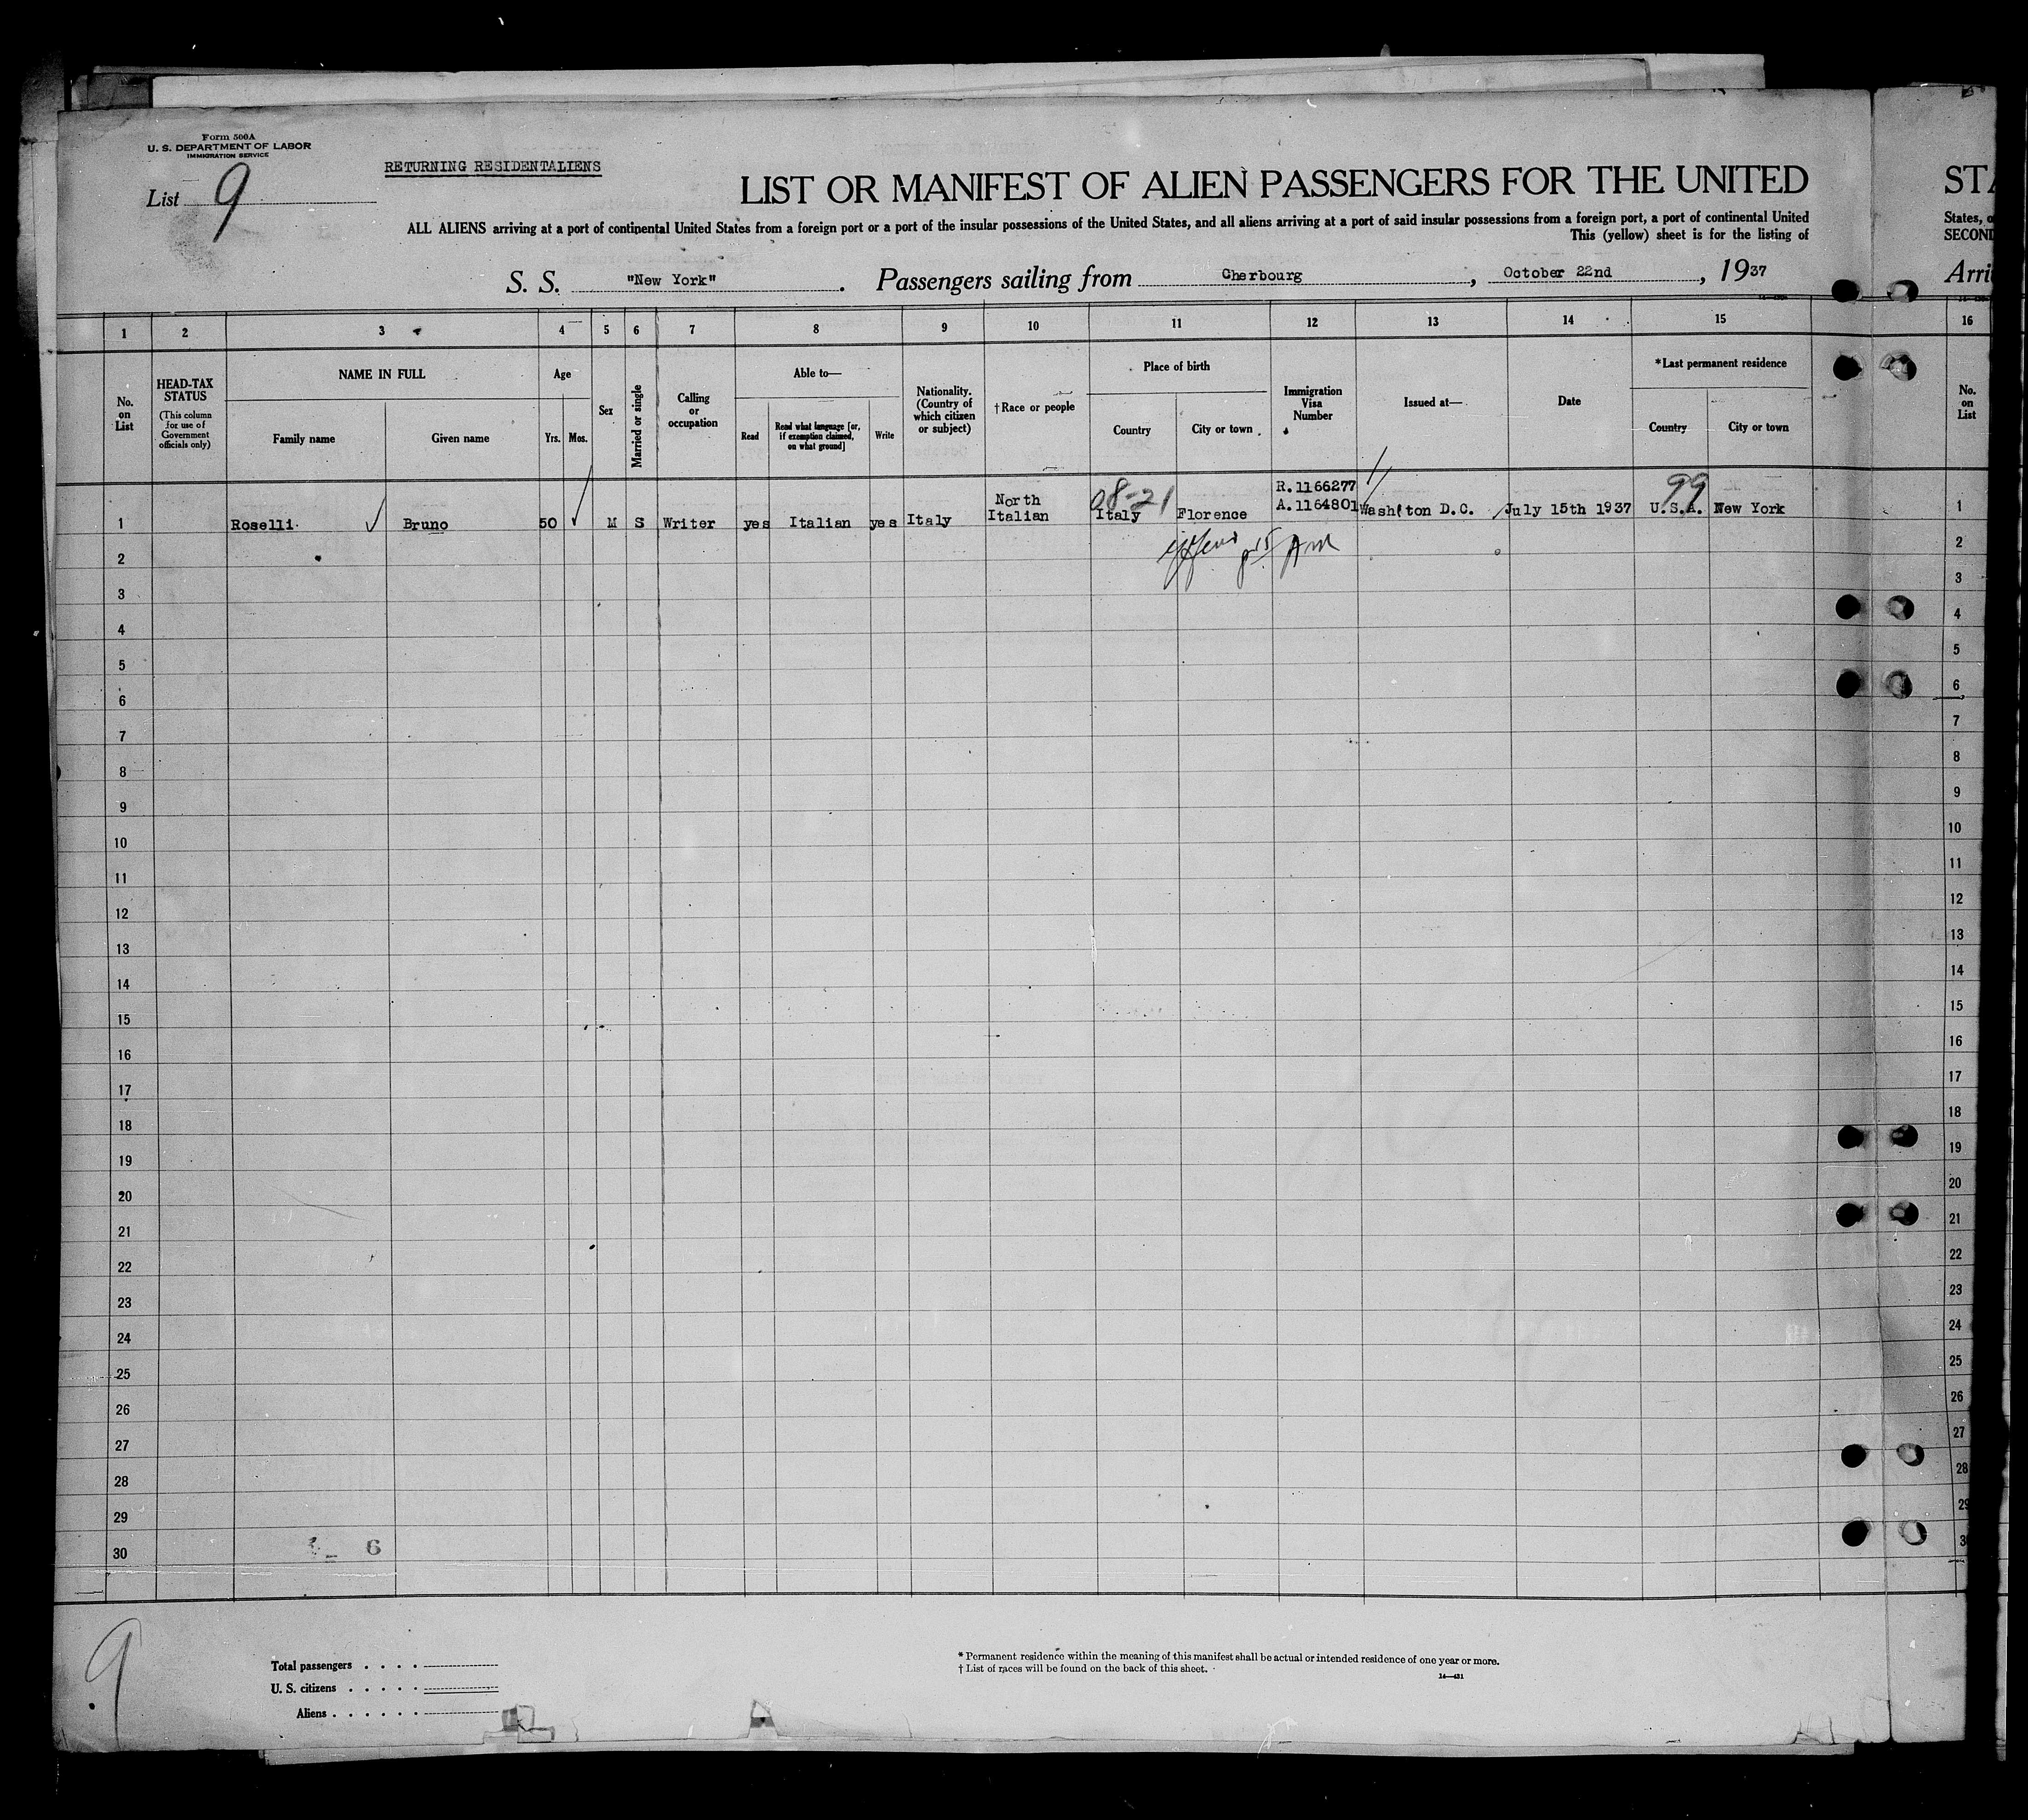 Form 500A
U. S. DEPARTMENT OF LABOR
IMMIGRATION SERVICE
RETURNING RESIDENTALIENS
List 9
LIST OR MANIFEST OF ALIEN PASSENGERS FOR THE UNITED
STA
ALL ALIENS arriving at a port of continental United States from a foreign port or a port of the insular possessions of the United States, and all aliens arriving at a port of said insular possessions from a foreign port, a port of continental United
States, o
This (yellow) sheet is for the listing of
SECOND
S. S. "New York". Passengers sailing from Cherbourg, October 22nd, 1937
Arri
1 2 3 4 5 6 7 8 9 10 11 12 13 14 15 16
No. on List
HEAD-TAX STATUS
(This column for use of Government officials only)
NAME IN FULL
Family name
Given name
Age
Yrs.
Mos.
Sex
Married or single
Calling or occupation
Able to—
Read
Read what language [or, if exemption claimed, on what ground]
Write
Nationality. (Country of which citizen or subject)
†Race or people
Place of birth
Country
City or town
Immigration Visa Number
Issued at—
Date
*Last permanent residence
Country
City or town
No. on List
08-21
99
North
R.1166277
1 Roselli Bruno 50 M S Writer yes Italian yes Italy Italian Italy Florence A.1164801 Washton D.C. July 15th 1937 U.S.A. New York 1
2 2
3 3
4 4
5 5
6 6
7 7
8 8
9 9
10 10
11 11
12 12
13 13
14 14
15 15
16 16
17 17
18 18
19 19
20 20
21 21
22 22
23 23
24 24
25 25
26 26
27 27
28 28
29 29
30 6 3
9
Total passengers . . . .
U. S. citizens . . . . .
Aliens . . . . . .
* Permanent residence within the meaning of this manifest shall be actual or intended residence of one year or more.
† List of races will be found on the back of this sheet.
14—431